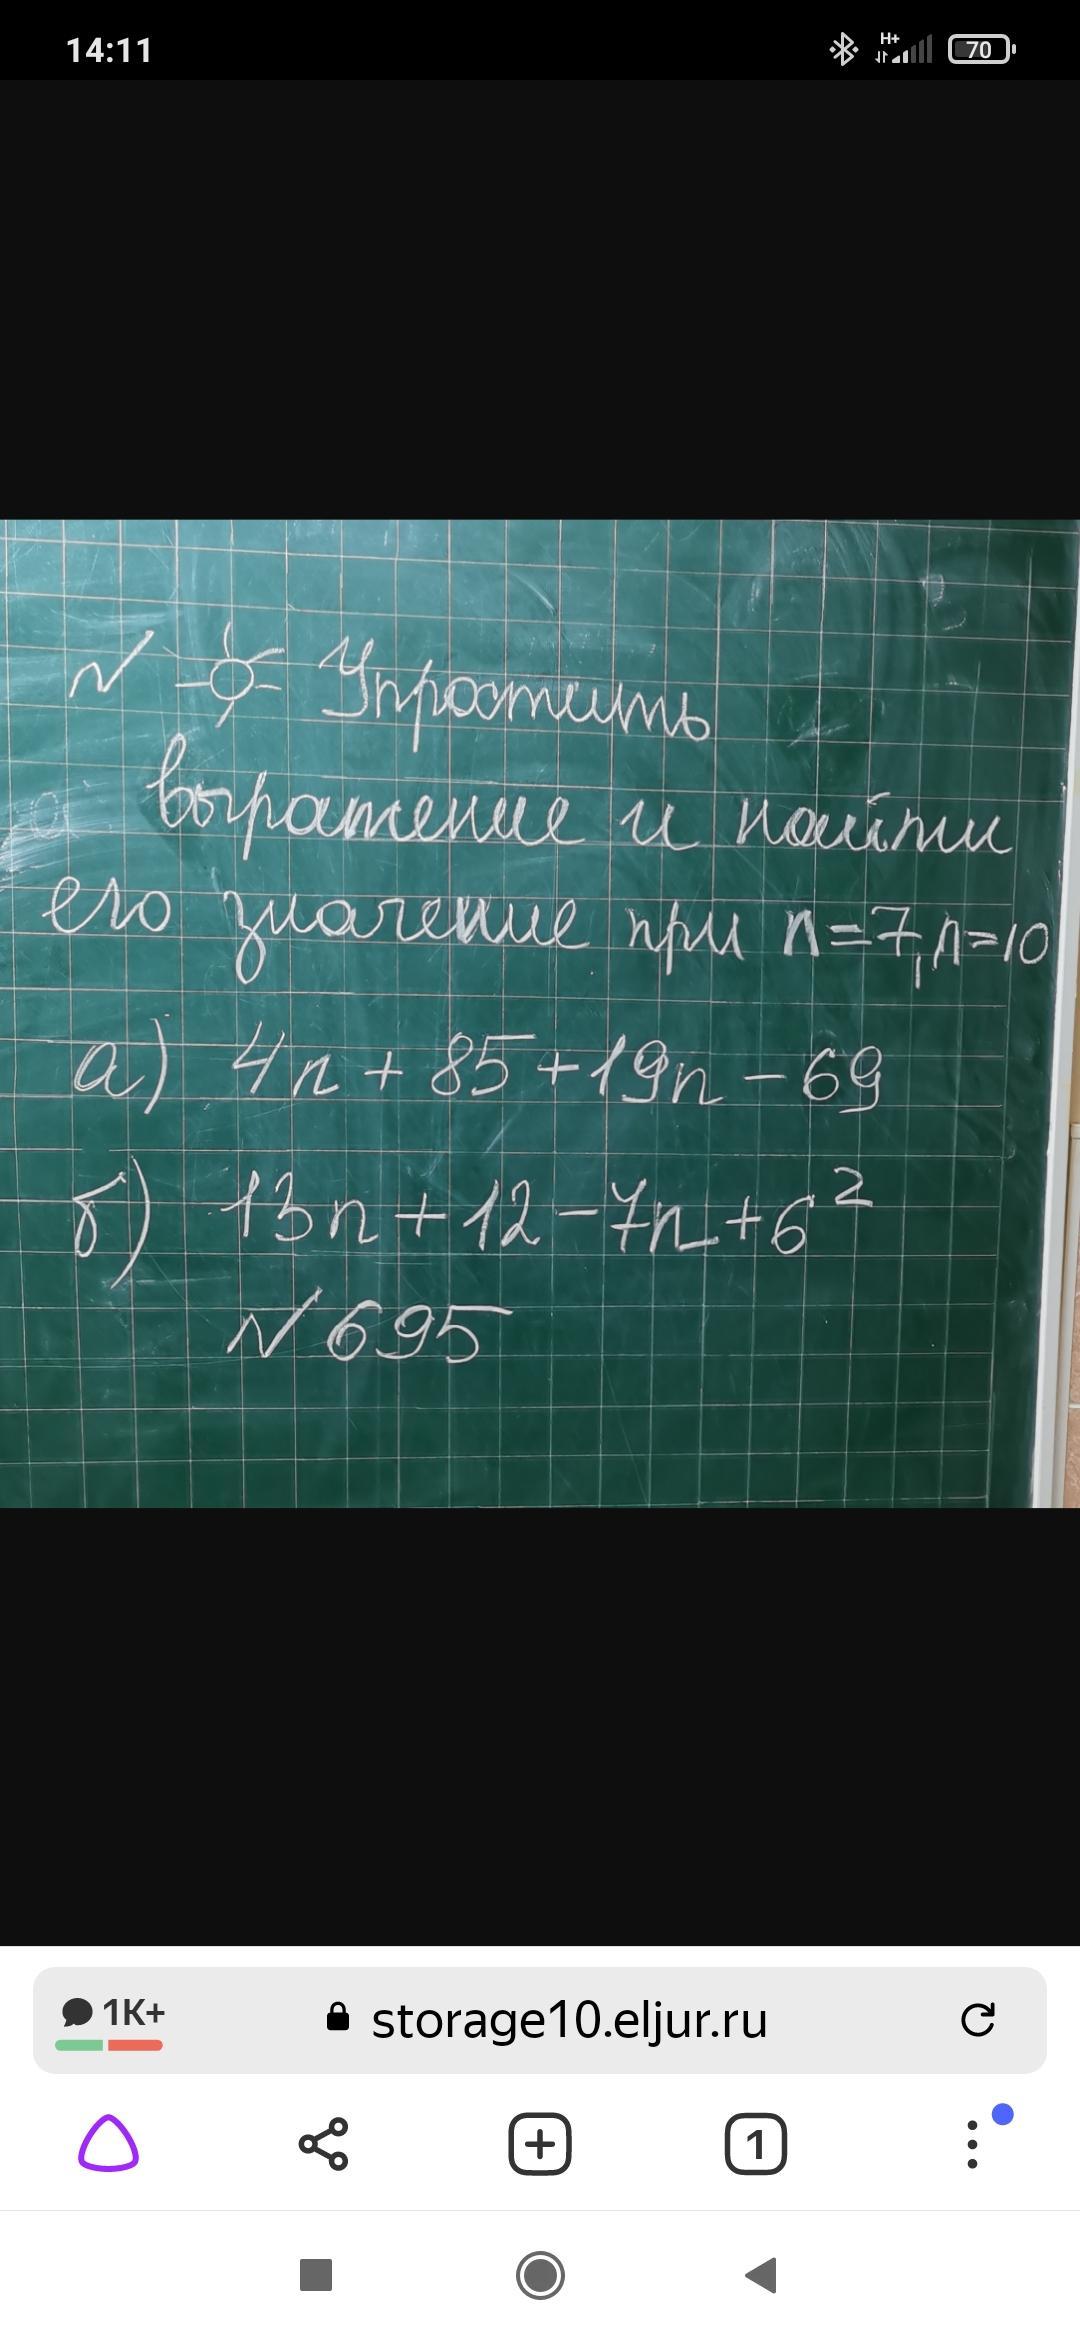 14:11
H+
70
N Упростить
выражение и найти
его значение при n=7, n=10
а) 4n + 85 + 19n - 69
б) 13n + 12 - 7n + 6²
N 695
1K+
storage10.eljur.ru
1